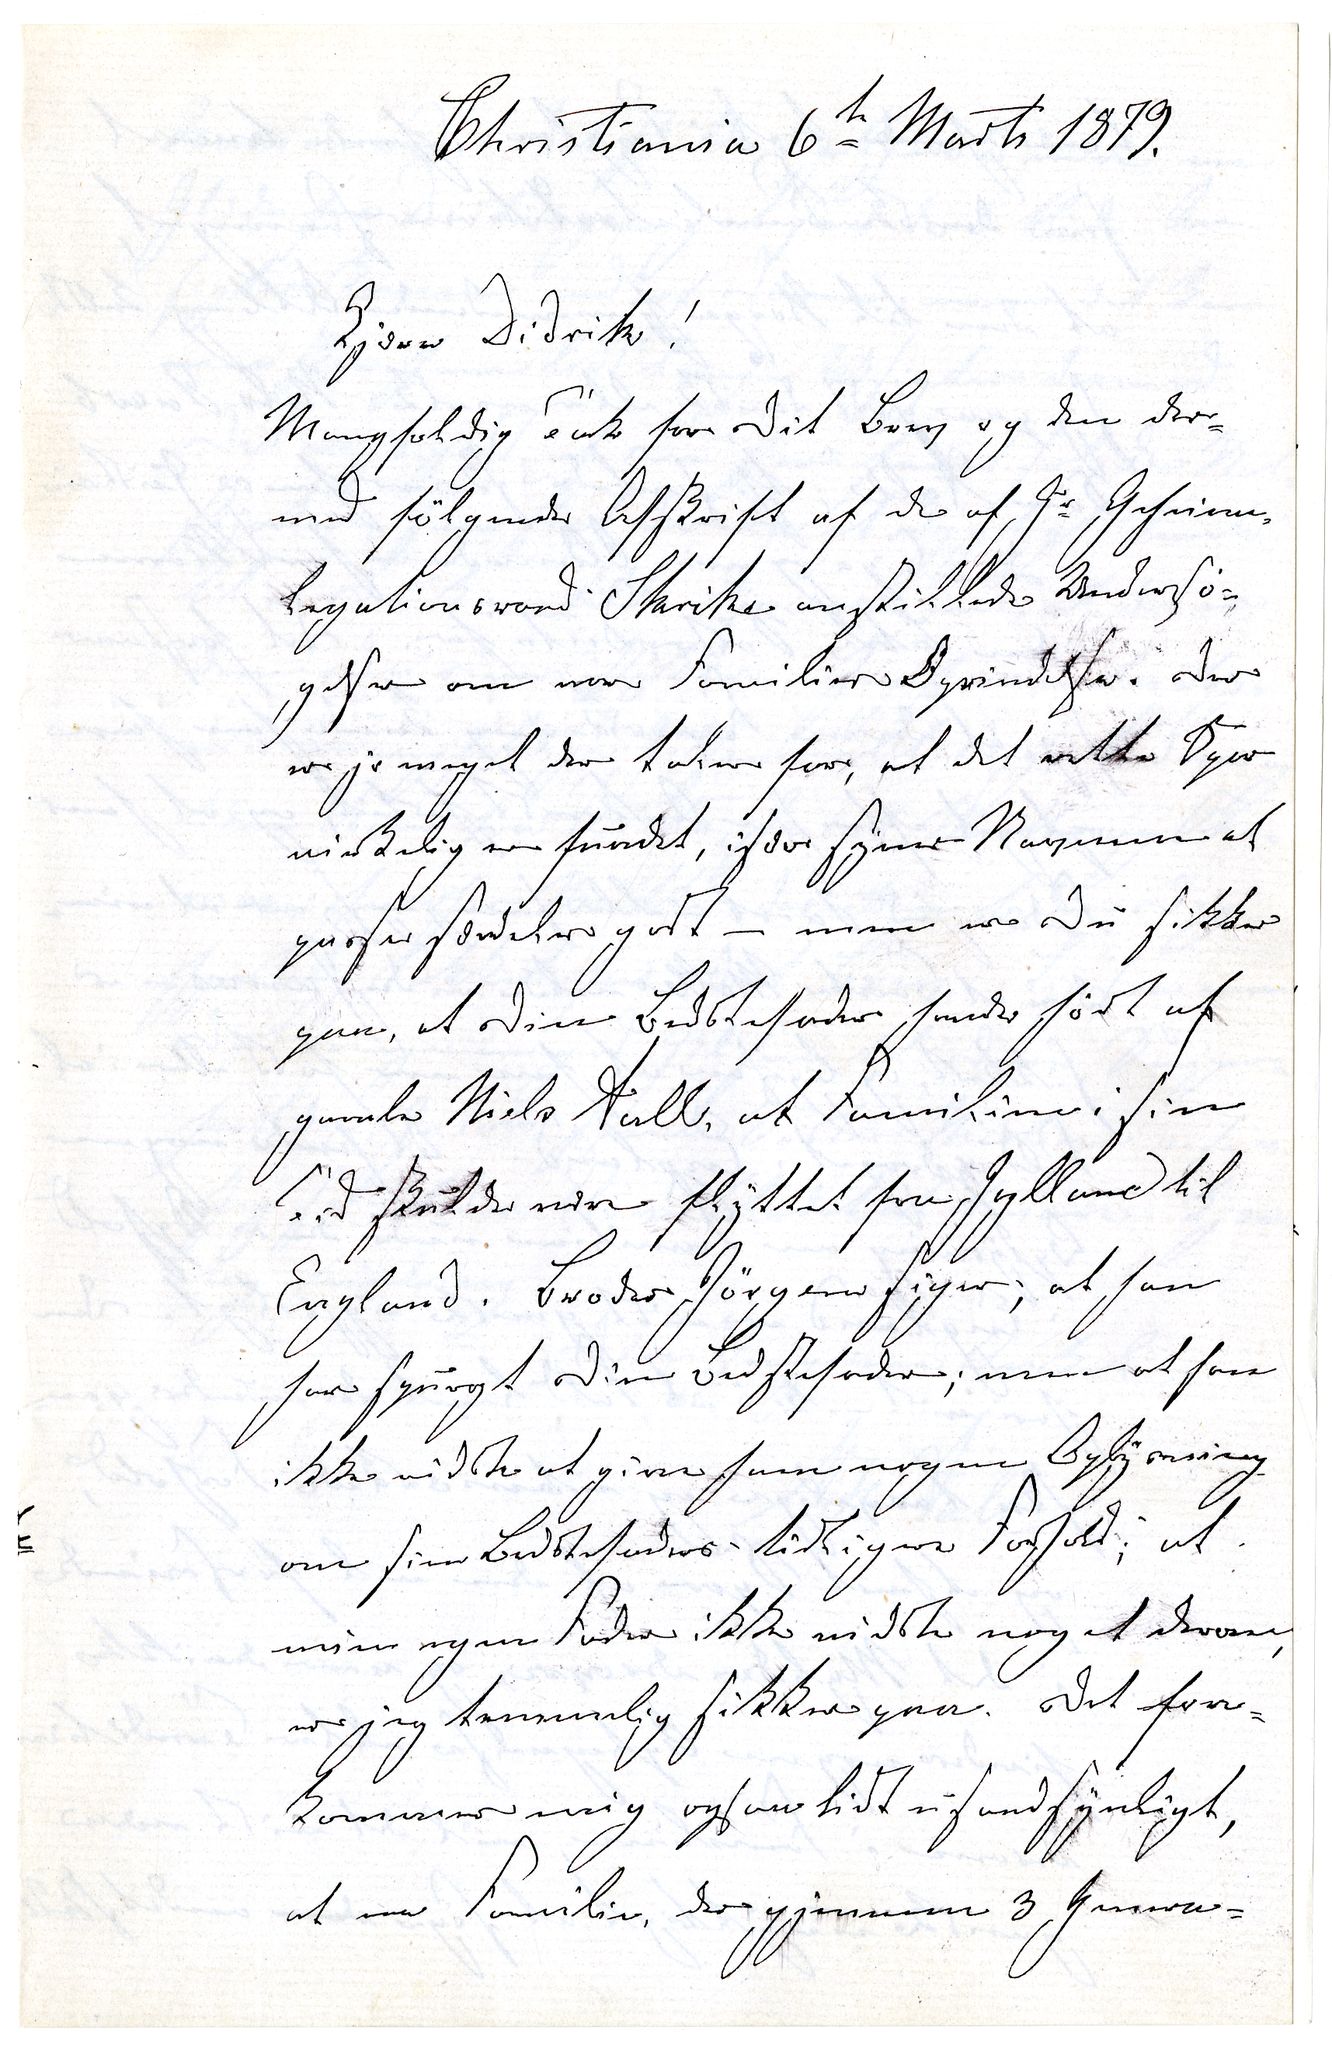 Christiania 6te Marts 1879.
Kjære Didrik!
Mangfoldig Tak for Dit Brev og den der-
med følgende Afskrift af de af Hr Geheime-
legationsraad anstillede Undersø-
gelser om vor Families Oprindelse. Der
er jo meget der taler for, at det rette Spor
virkelig er fundet, især synes Navnene at
passe særdeles godt – men er Du sikker
paa, at Din Bedstefader havde hørt af
gamle Niels Aall, at Familien i sin
Tid skulde være flyttet fra Jylland til
England. Broder Jörgen siger, at han
har spurgt Din Bedstefader; men at han
ikke vidste at give ham nogen Oplysning
om sin Bedstefaders tidligere Forhold; at
min egen Fader ikke vidste noget derom,
er jeg temmelig sikker paa. Det fore-
kommer mig ogsaa lidt usandsynligt,
at en Familie, der gjennem 3 Genera-